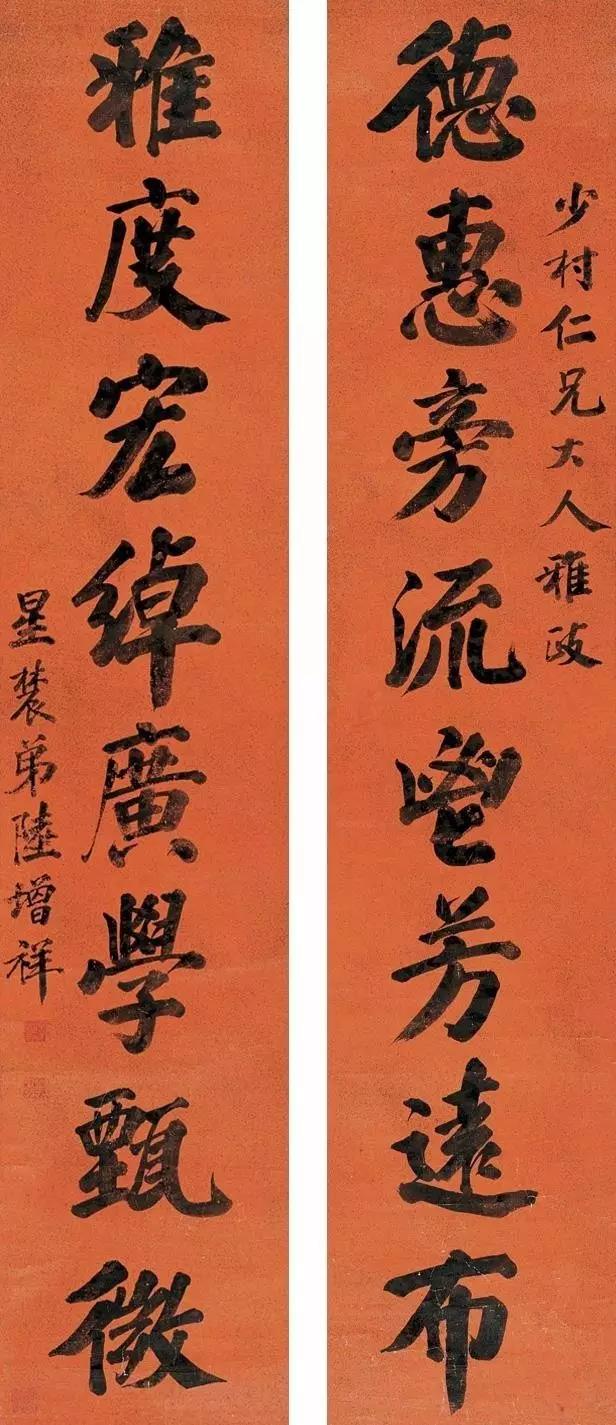 少村仁兄大人雅政
德惠旁流鬯芳遠布
雅度宏綽廣學甄微
星辳弟陸增祥